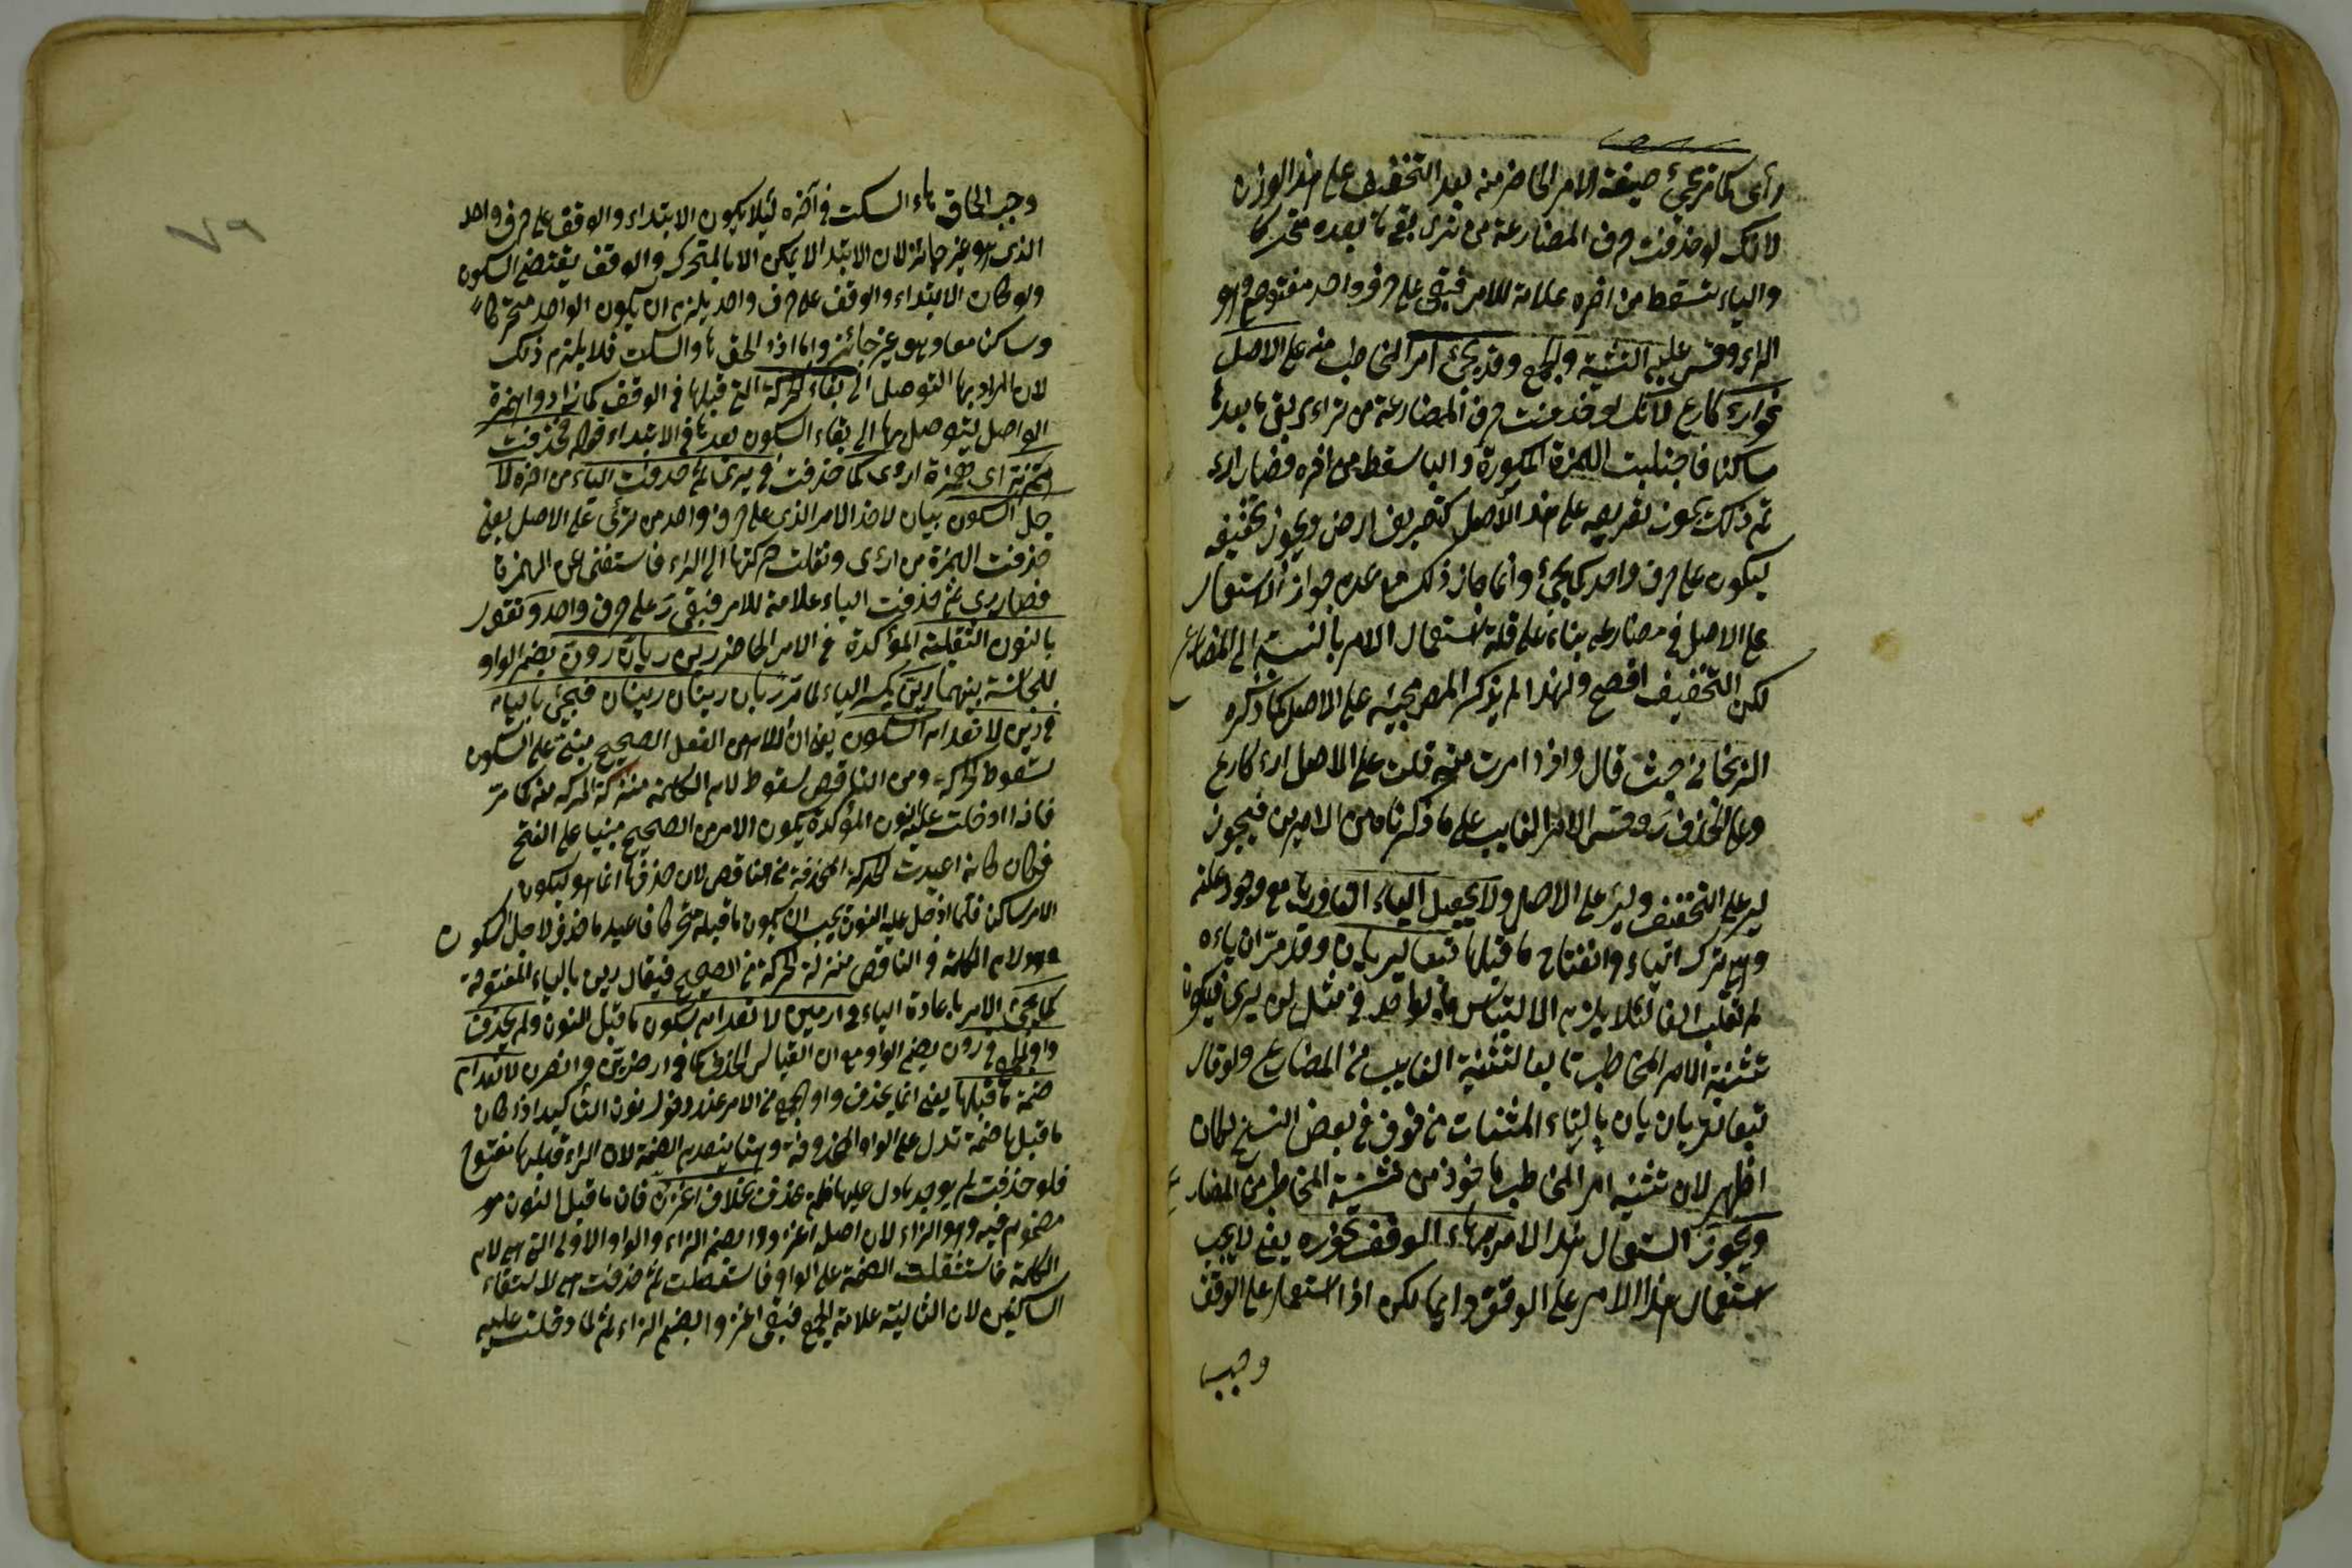 رأى كما ترى يجئ صيغة الامر الحاضر منه بعد التخفيف على هذا الوزن
لانك لو حذفت حرف المضارعة من ترى بقى ما بعده متحركا
والياء تسقط من اخره علامة للامر فتبقى على حرف واحد مفتوح وهو
الراء وقس عليه التثنية والجمع وقد يجئ امر المخاطب منه على الاصل
نحو ارء كارع لانك لو حذفت حرف المضارعة من ترءى بقى ما بعدها
ساكنا فاجتلبت الهمزة المكسورة والياء سقط من اخره فصار ارء
ثم ذلك يجوز تصريفه على هذا الاصل كتصريف ارض ويجوز تخفيفه
ليكون على حرف واحد كما يجئ وانما جاز ذلك مع عدم جواز الاستعمال
على الاصل في مضارعه بناء على قلة استعمال الامر بالنسبة الى المضارع
لكن التخفيف افصح ولهذا لم يذكر المص مجيئه على الاصل كما ذكره
الزنجاني حيث قال واذا امرت منه قلت على الاصل ارء كارع
وعلى الحذف رَ وقس الامر الغايب على ما ذكرناه من الامرين فيجوز
لير على التخفيف وليرء على الاصل ولا يجعل الياء الفا في ريا مع وجود علته
وهي تحرك الياء وانفتاح ما قبلها تبعا ليريان وقد مر ان ياءه
لم تقلب الفا لئلا يلزم الالتباس بالواحد في مثل لن يرى فيكون
تثنية الامر المخاطب تابعا لتثنية الغايب من المضارع ولو قال
تبعا لتريان بالتاء المثناة من فوق في بعض النسخ لكان
اظهر لان تثنية امر المخاطب ماخوذ من تثنية المخاطب من المضارع
ويجوز استعمال هذا الامر بهاء الوقف نحو ره يعنى لا يجب
استعمال هذا الامر على الوقف دائما لكن اذا استعمل على الوقف
وجب
٧٩
وجب الحاق هاء السكت في آخره لئلا يكون الابتداء والوقف على حرف واحد
الذي هو غير جائز لان الابتداء لا يمكن الا بالمتحرك والوقف يقتضى السكون
ولو كان الابتداء والوقف على حرف واحد يلزم ان يكون الواحد متحركا
وساكنا معا وهو غير جائز واما اذا الحق هاء السكت فلا يلزم ذلك
لان المراد بها التوصل الى بقاء الحركة التي قبلها في الوقف كما زادوا همزة
الواصل ليتوصل بها الى بقاء السكون بعدها في الابتداء قوله فحذفت
همزته اى همزة ارءى كما حذفت في يرى ثم حذفت الياء من اخره لا
جل السكون بيان لاخذ الامر الذي على حرف واحد من ترءى على الاصل يعنى
حذفت الهمزة من ارءى ونقلت حركتها الى الراء فاستغنى عن الهمزة
فصار رى ثم حذفت الياء علامة للامر فبقى رَ على حرف واحد وتقول
بالنون الثقيلة المؤكدة في الامر الحاضر رين ريان رون بضم الواو
للمجانسة بينهما رين بكسر الياء لما مر ريان رينان فيجئ بالياء
في رين لانعدام السكون يعنى ان الامر من الفعل الصحيح مبنى على السكون
لسقوط الحركة ومن الناقص لسقوط لام الكلمة منزلة الحركة منه كما مر
فاذا ادخلت عليه نون المؤكدة يكون الامر من الصحيح مبنيا على الفتح
فكان كانه اعيدت الحركة المحذوفة من الناقص لان حذفها انما هو ليكون
الامر ساكنا فلما ادخل عليه النون يجب ان يكون ما قبله متحركا فاعيد ما حذف لاجل السكون
وهو لام الكلمة في الناقص منزلة الحركة من الصحيح فيقال رين بالياء المفتوحة
كما يجئ الامر باعادة الياء في ارمين لانعدام سكون ما قبل النون ولم يحذف
واو الجمع في رون بضم الواو مع ان القياس الحذف كما في ارضون وانصرن لانعدام
ضمة ما قبلها يعنى انما يحذف واو الجمع من الامر عند دخول نون التاكيد اذا كان
ما قبلها ضمة تدل على الواو المحذوفة وهنا ينعدم الضمة لان الراء قبلها مفتوح
فلو حذفت لم يوجد ما دل عليها فلم يحذف بخلاف اغزن فان ما قبل النون هو
مضموم فيه وهو الزاء لان اصله اغزووا بضم الزاء والواو الاولى التي هي لام
الكلمة فاستثقلت الضمة على الواو فاسقطت ثم حذفت هي لالتقاء
الساكنين لان الثانية علامة الجمع فبقى اغزوا بضم الزاء ثم لما دخلت عليه